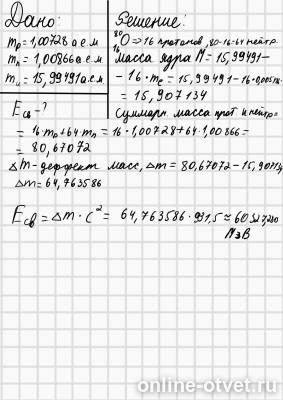 Дано:
mp = 1,00728 а.е.м
mn = 1,00866 а.е.м
mи = 15,99491 а.е.м
Eсв - ?
Решение:
⁸⁰₁₆O => 16 протонов, 80-16=64 нейтр.
Масса ядра M = 15,99491-
- 16·me = 15,99491-16·0,00
= 15,907134
Суммарн. масса прот и нейтр=
= 16·mp + 64·mn = 16·1,00728 + 64·1,00866 =
= 80,67072
Δm - деффект масс, Δm = 80,67072 -
Δm = 64,763586
Eсв = Δm · c² = 64,763586 · 931,5 ≈
МэВ
online-otvet.ru